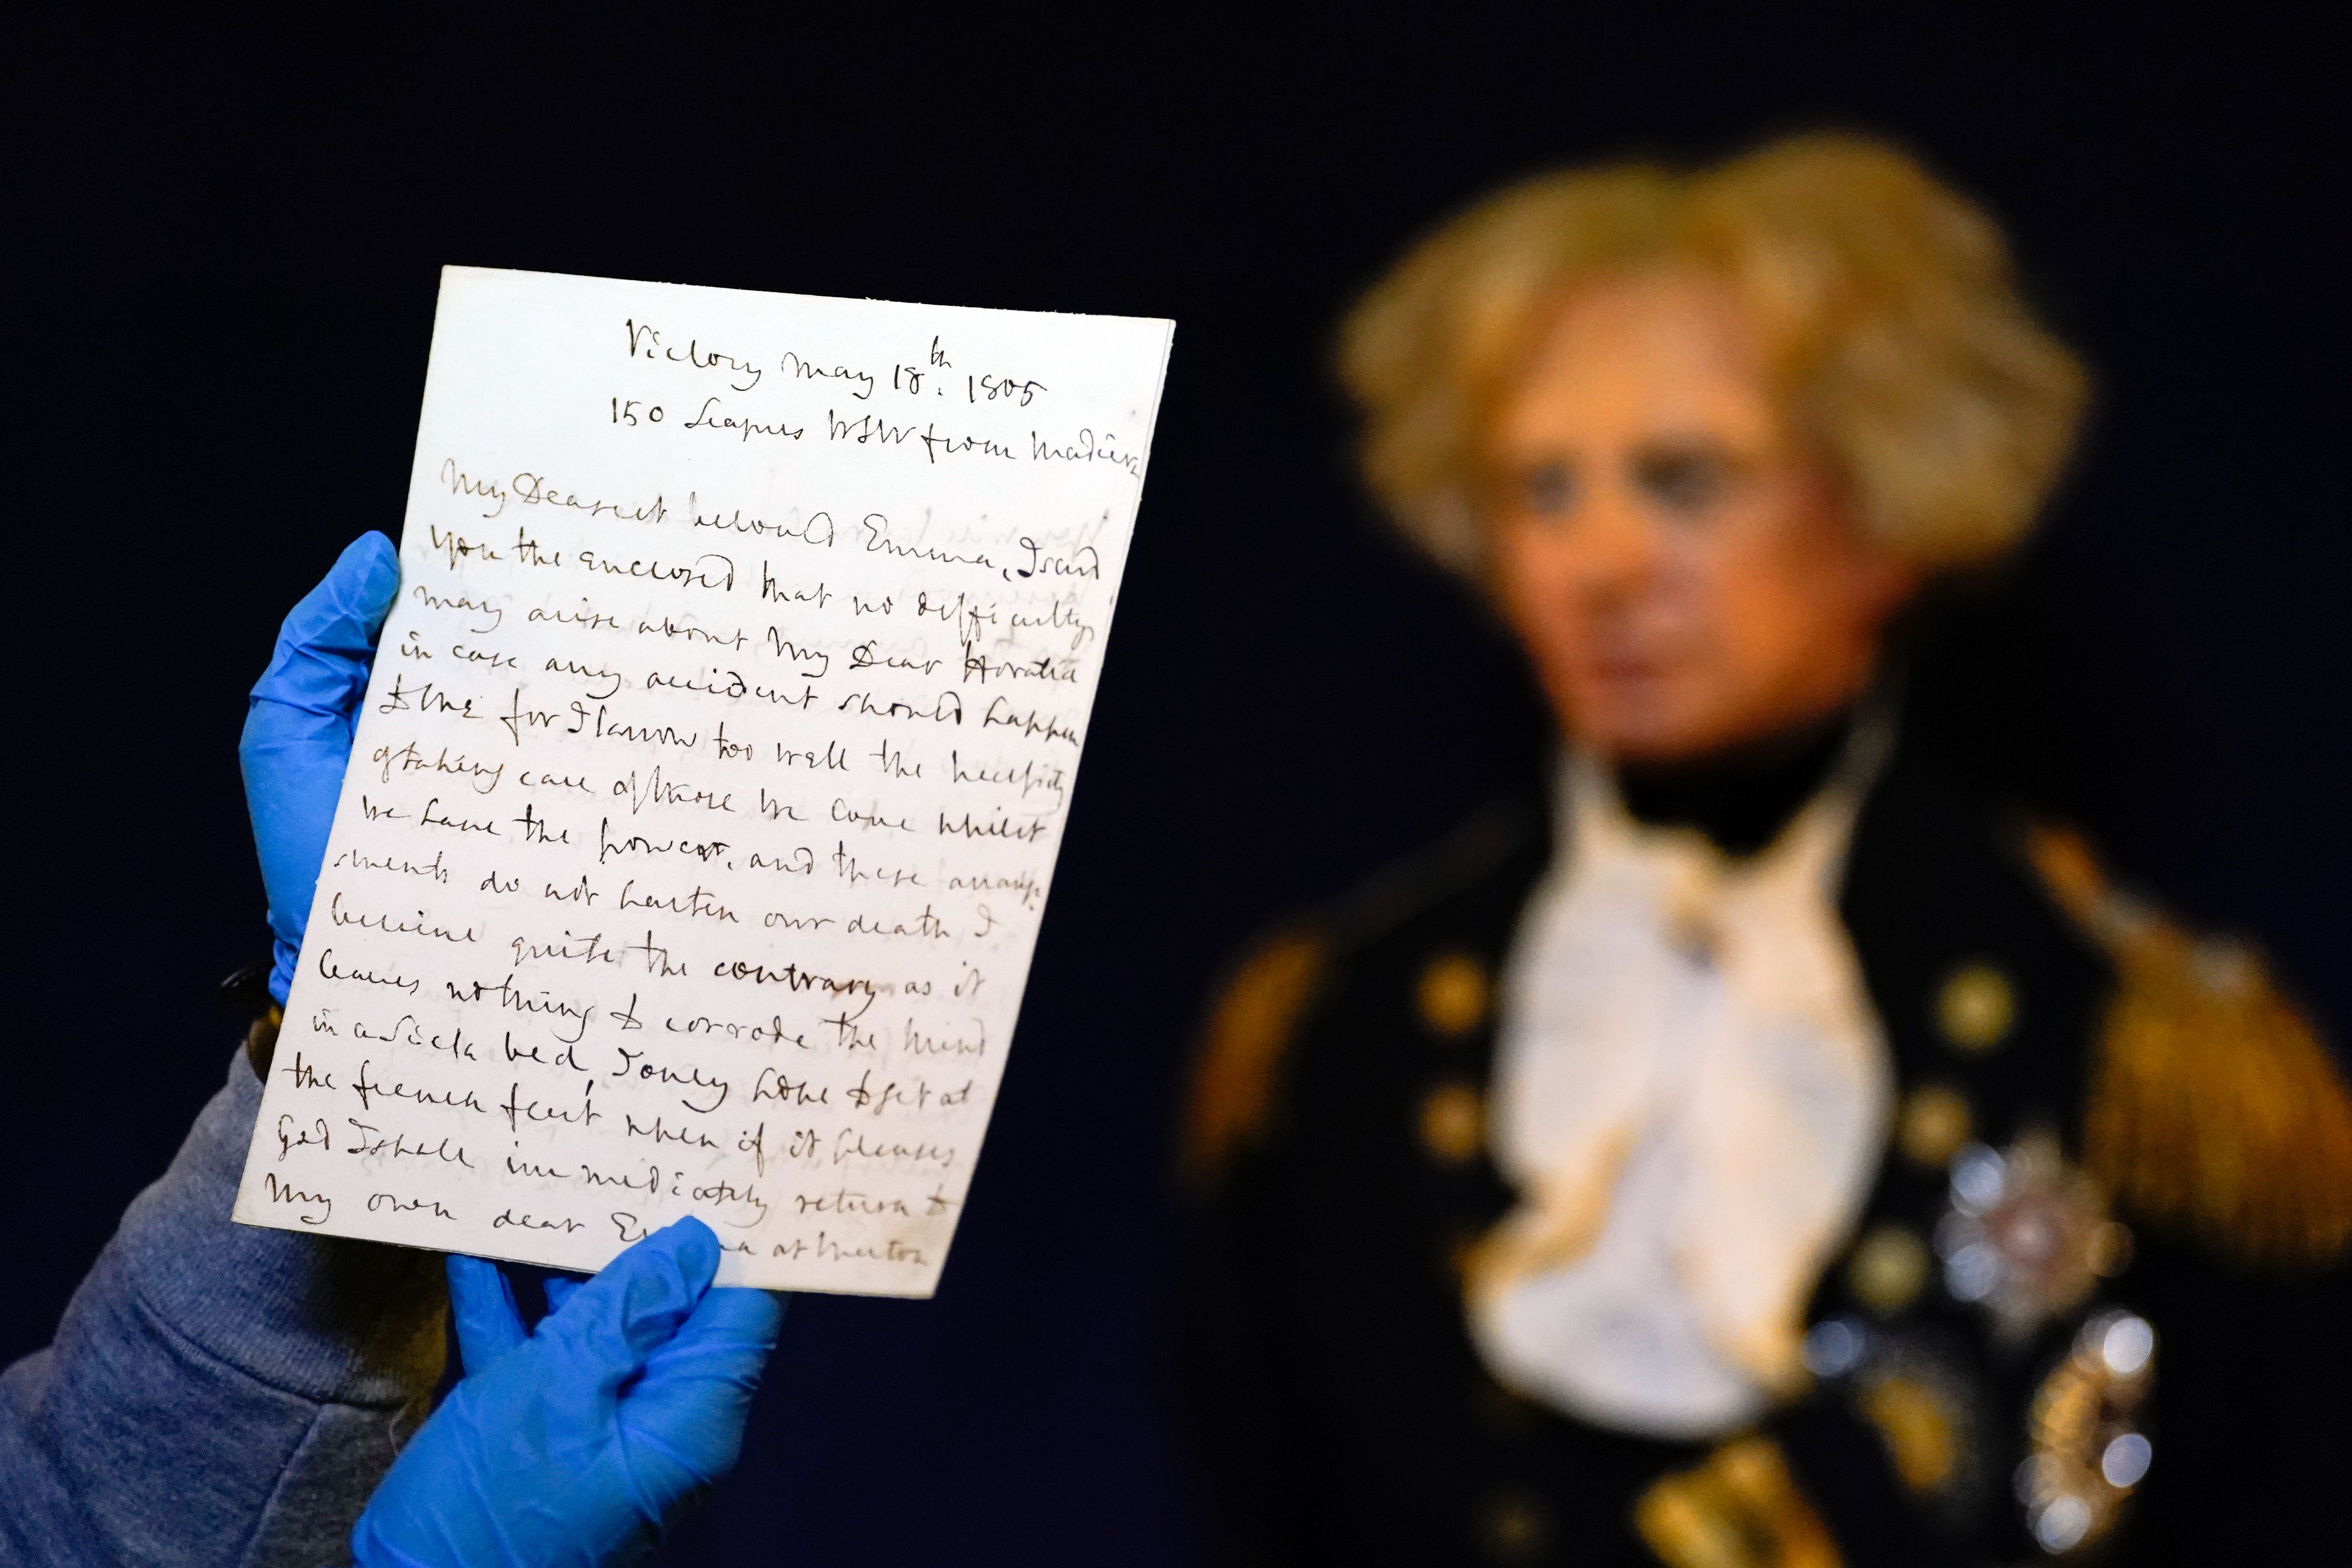 Victory May 18th. 1805
150 Leagues WSW from Madiera
My Dearest beloved Emma, I send
You the enclosed that no difficulty
may arise about My Dear Horatia
in case any accident should happen
to me for I know too well the necessity
of taking care of those we love whilst
we have the power, and these arrange
:ments do not hasten our death I
believe quite the contrary as it
leaves nothing to corrode the mind
in a sick bed, I only hope to get at
the french fleet when if it pleases
God I shall immediately return to
My own dear Emma at Merton